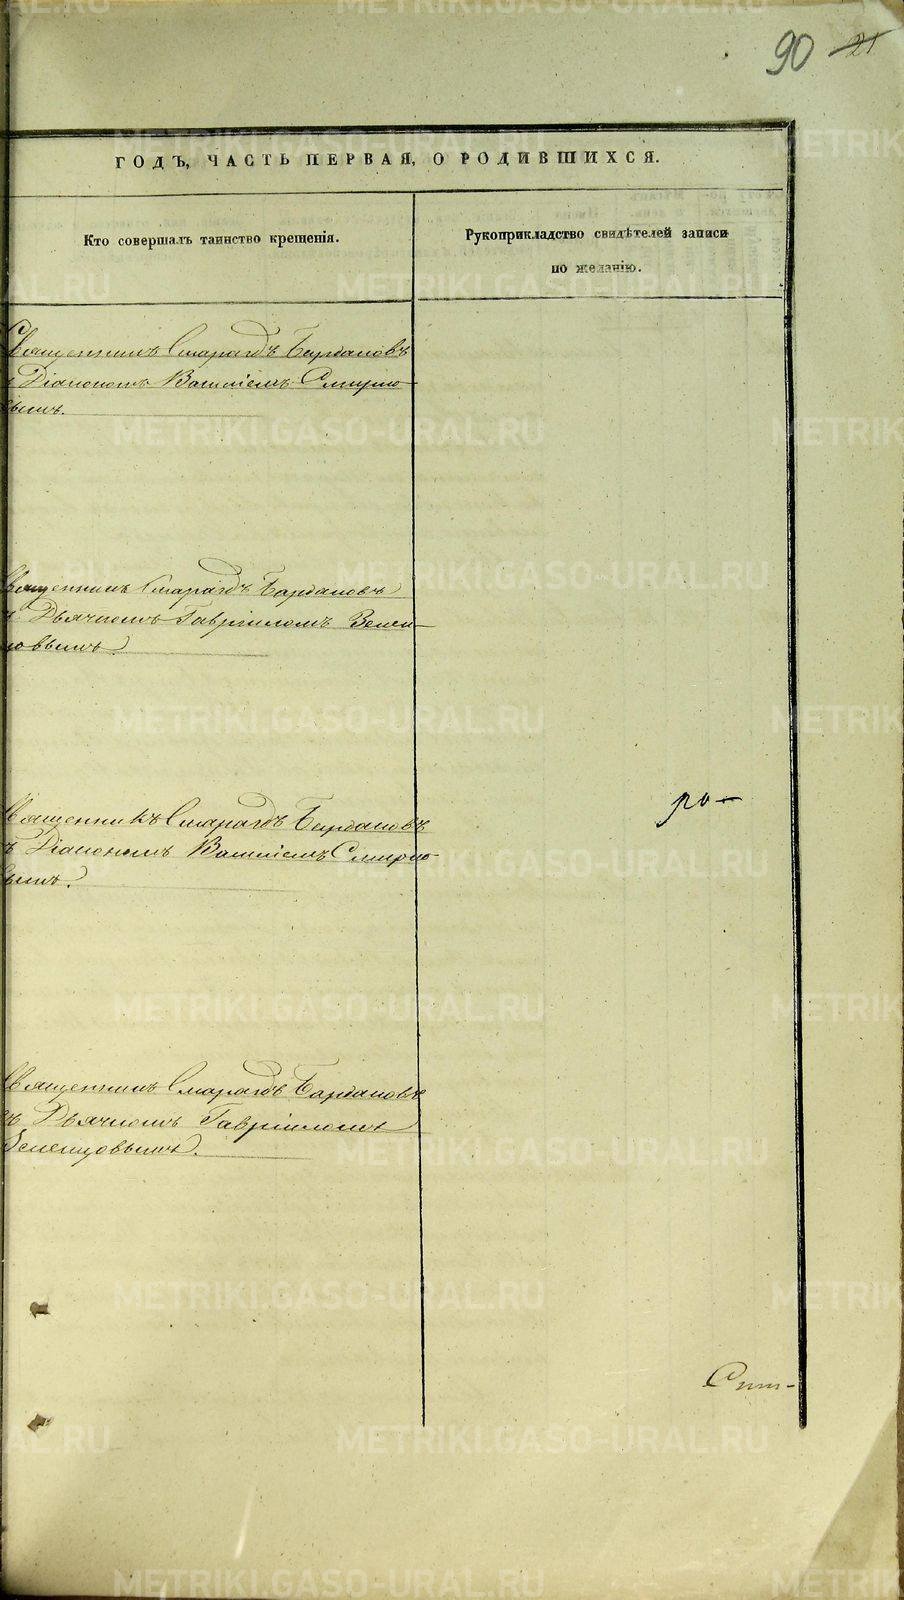 90 21
ГОДЪ, ЧАСТЬ ПЕРВАЯ, О РОДИВШИХСЯ.
Кто совершалъ таинство крещенія.
Рукоприкладство свидѣтелей записи
по желанію.
Священникъ Смарагдъ
съ Діакономъ Василіемъ Смирно-
вымъ.
Священникъ Смарагдъ
съ Дьячкомъ Гавріиломъ Зелен-
цовымъ.
Священникъ Смарагдъ
съ Діакономъ Василіемъ Смирно-
вымъ.
ро-
Священникъ Смарагдъ
съ Дьячкомъ Гавріиломъ
Зеленцовымъ.
METRIKI.GASO-URAL.RU